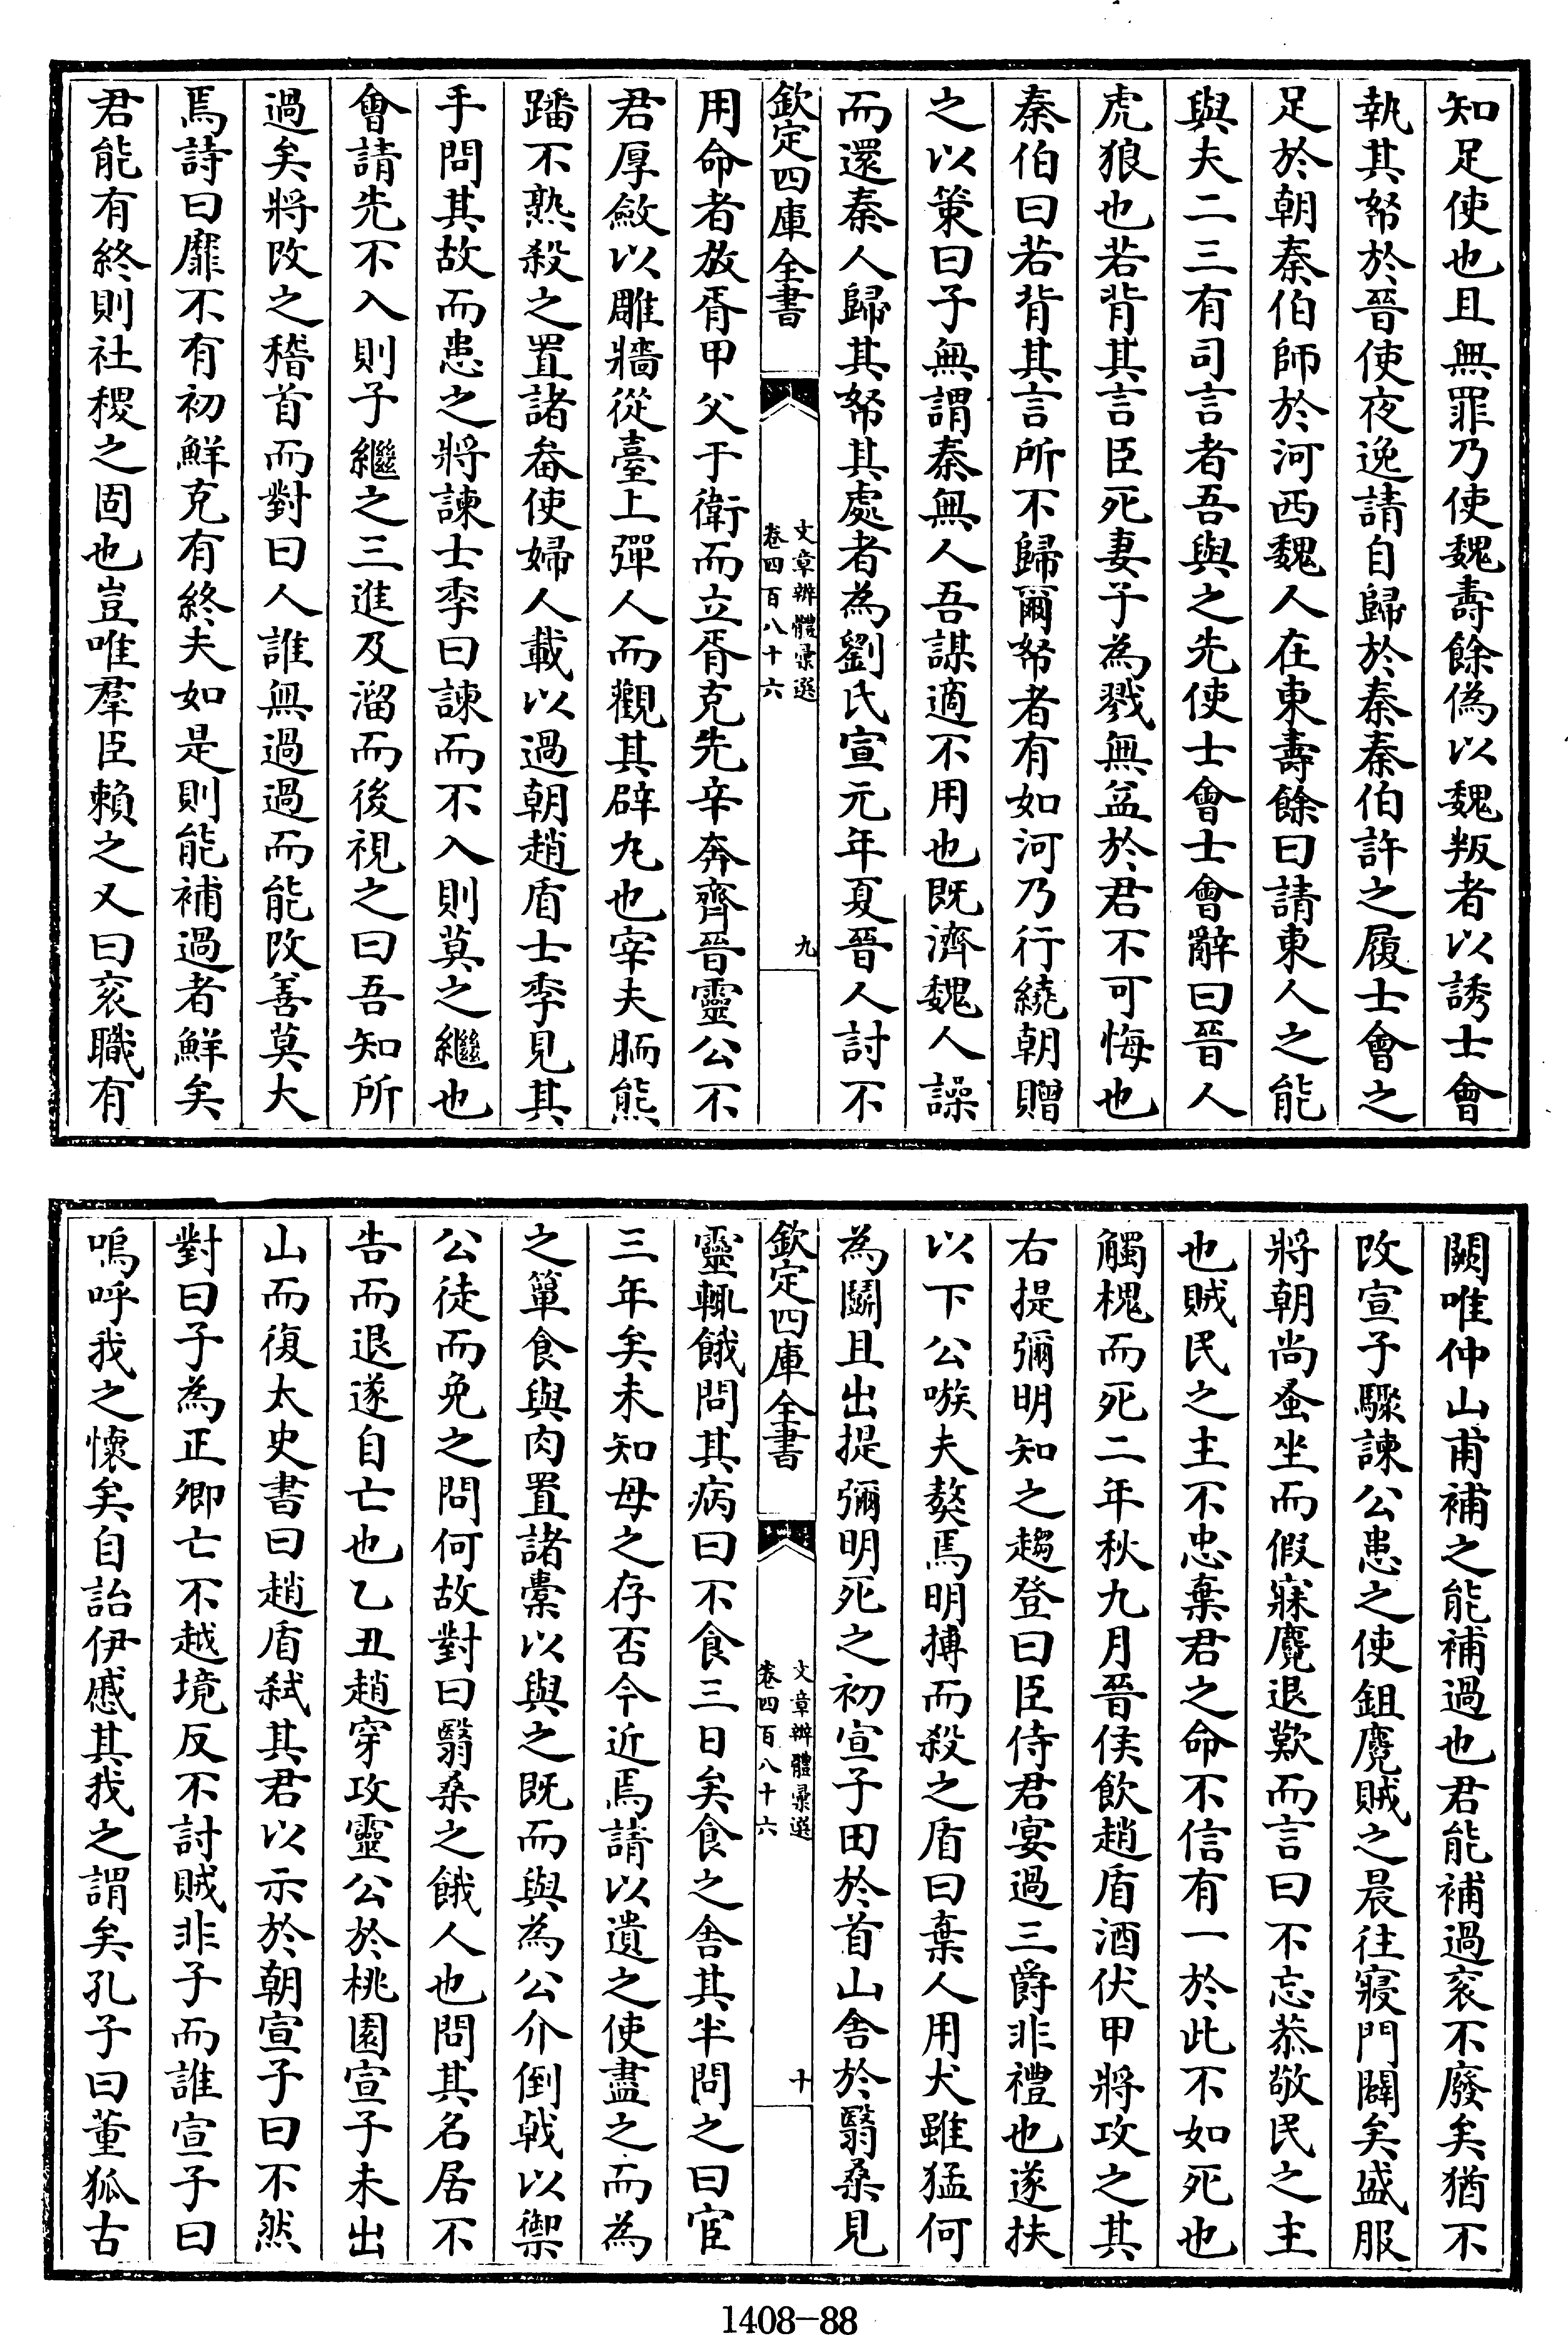 知足使也且無罪乃使魏壽餘偽以魏叛者以誘士會
執其帑於晉使夜逸請自歸於秦秦伯許之履士會之
足於朝秦伯師於河西魏人在東壽餘曰請東人之能
與夫二三有司言者吾與之先使士會士會辭曰晉人
虎狼也若背其言臣死妻子為戮無益於君不可悔也
秦伯曰若背其言所不歸爾帑者有如河乃行繞朝贈
之以策曰子無謂秦無人吾謀適不用也既濟魏人譟
而還秦人歸其帑其處者為劉氏宣元年夏晉人討不
欽定四庫全書
文章辨體彙選
卷四百八十六
九
用命者放胥甲父于衛而立胥克先辛奔齊晉靈公不
君厚斂以雕牆從臺上彈人而觀其辟丸也宰夫胹熊
蹯不熟殺之置諸畚使婦人載以過朝趙盾士季見其
手問其故而患之將諫士季曰諫而不入則莫之繼也
會請先不入則子繼之三進及溜而後視之曰吾知所
過矣將改之稽首而對曰人誰無過過而能改善莫大
焉詩曰靡不有初鮮克有終夫如是則能補過者鮮矣
君能有終則社稷之固也豈唯羣臣賴之又曰衮職有
闕唯仲山甫補之能補過也君能補過衮不廢矣猶不
改宣子驟諫公患之使鉏麑賊之晨往寢門闢矣盛服
將朝尚蚤坐而假寐麑退歎而言曰不忘恭敬民之主
也賊民之主不忠棄君之命不信有一於此不如死也
觸槐而死二年秋九月晉侯飲趙盾酒伏甲將攻之其
右提彌明知之趨登曰臣侍君宴過三爵非禮也遂扶
以下公嗾夫獒焉明搏而殺之盾曰棄人用犬雖猛何
為鬭且出提彌明死之初宣子田於首山舍於翳桑見
欽定四庫全書
文章辨體彙選
卷四百八十六
十
靈輒餓問其病曰不食三日矣食之舍其半問之曰宦
三年矣未知母之存否今近焉請以遺之使盡之而為
之簞食與肉置諸橐以與之既而與為公介倒戟以禦
公徒而免之問何故對曰翳桑之餓人也問其名居不
告而退遂自亡也乙丑趙穿攻靈公於桃園宣子未出
山而復太史書曰趙盾弒其君以示於朝宣子曰不然
對曰子為正卿亡不越境反不討賊非子而誰宣子曰
嗚呼我之懷矣自詒伊慼其我之謂矣孔子曰董狐古
1408-88